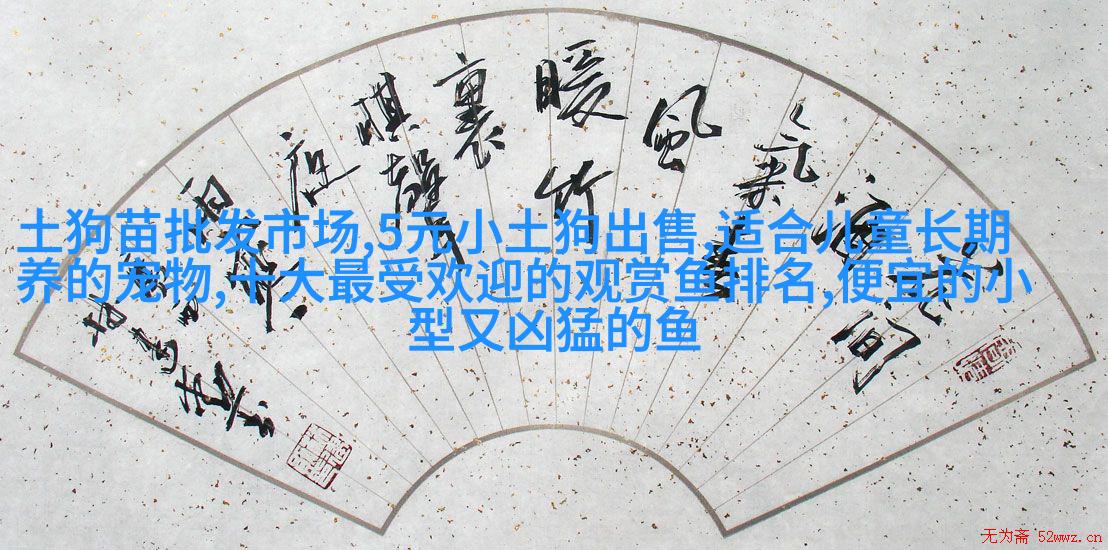 土狗苗批发市场,5元小土狗出售,适合儿童长期
养的宠物,十大最受欢迎的观赏鱼排名,便宜的小
型又凶猛的鱼
花間
酒
氣春
風
暖竹
裏
棋聲
夜
雨寒
无为斋 52wwz.cn